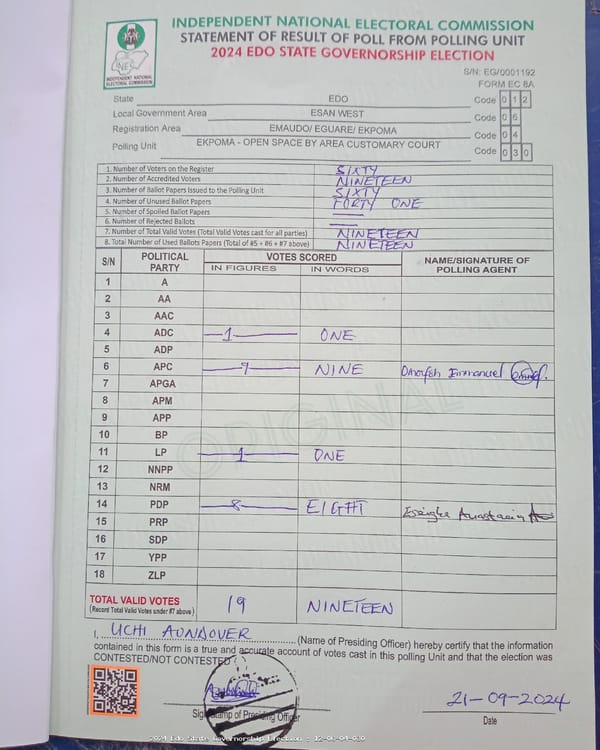 INDEPENDENT NATIONAL ELECTORAL COMMISSION
STATEMENT OF RESULT OF POLL FROM POLLING UNIT
2024 EDO STATE GOVERNORSHIP ELECTION
INDEPENDENT NATIONAL ELECTORAL COMMISSION
S/N: EG/0001192
FORM EC 8A
State EDO Code 0 1 2
Local Government Area ESAN WEST Code 0 6
Registration Area EMAUDO/ EGUARE/ EKPOMA Code 0 4
Polling Unit EKPOMA - OPEN SPACE BY AREA CUSTOMARY COURT Code 0 3 0
1. Number of Voters on the Register SIXTY
2. Number of Accredited Voters NINETEEN
3. Number of Ballot Papers Issued to the Polling Unit SIXTY
4. Number of Unused Ballot Papers FORTY ONE
5. Number of Spoiled Ballot Papers
6. Number of Rejected Ballots
7. Number of Total Valid Votes (Total Valid Votes cast for all parties) NINETEEN
8. Total Number of Used Ballots Papers (Total of #5 + #6 + #7 above) NINETEEN
S/N POLITICAL PARTY VOTES SCORED NAME/SIGNATURE OF POLLING AGENT
IN FIGURES IN WORDS
1 A
2 AA
3 AAC
4 ADC 1 ONE
5 ADP
6 APC 9 NINE Emmanuel
7 APGA
8 APM
9 APP
10 BP
11 LP 1 ONE
12 NNPP
13 NRM
14 PDP 8 EIGHT
15 PRP
16 SDP
17 YPP
18 ZLP
ORIGINAL
TOTAL VALID VOTES 19 NINETEEN
(Record Total Valid Votes under #7 above)
I, UCHI AONDOVER (Name of Presiding Officer) hereby certify that the information
contained in this form is a true and accurate account of votes cast in this polling Unit and that the election was
CONTESTED/NOT CONTESTED
21-09-2024
Stamp of Presiding Officer Date
2024 Edo State Governorship Election - 12-06-04-030